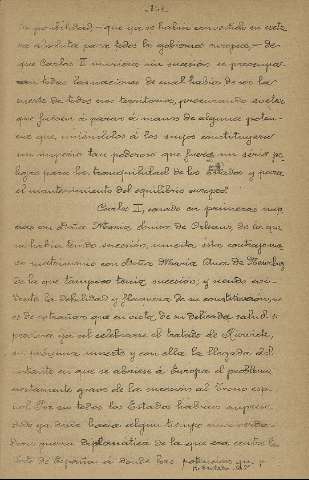 probabilidad – que ya se había convertido en certe
za absoluta para todos los gobiernos europeos, – de
que Carlos II muriera sin sucesión, se preocupa-
ron todas las naciones de cual había de ser la
suerte de todos sus territorios, procurando evitar
que fuesen á parar á manos de alguna poten-
cia que, uniéndolos á los suyos constituyera
un imperio tan poderoso que fuera un serio pe-
ligro para la tranquilidad de los Estados y para
el mantenimiento del equilibrio europeo.
Carlos II, casado en primeras nup
cias con Doña María Luisa de Orleans, de la que
no había tenido sucesión, muerta ésta contrajo nue
vo matrimonio con Doña María Ana de Neoburg
de la que tampoco tenía sucesión, y siendo evi-
dente la debilidad y flaqueza de su constitución, no
es de extrañar que en vista, de su delicada salud s
 ya al celebrarse el tratado de Riswick,
su próxima muerte y con ella la llegada del
instante en que se abriese á Europa el problema
sumamente grave de la sucesión al trono espa
ñol. Por eso todos los Estados habían
 hacía algún tiempo una verda
dera guerra diplomática de la que era centro la
Corte de España á donde las potencias que p